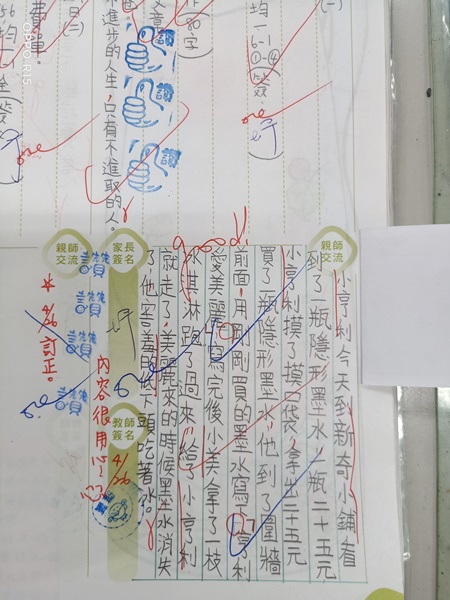 費單。
日(二)
不進步的人生，只有不進取的人。
讚
讚
讚
作80字
均一
6-1
①-④
簽
親師交流
小亨利今天到新奇小鋪看
到了一瓶隱形墨水，一瓶二十五元
小亨利摸了摸口袋，拿出二十五元
買了一瓶隱形墨水，他到了圍牆
前面，用剛剛買的墨水寫下亨利
愛美麗，寫完後小美拿了一枝
冰淇淋跑了過來，給了小亨利
就走了，美麗來的時候墨水消失
了，他害羞的低下頭吃著冰。
家長簽名
教師簽名
4/26
內容很用心！
親師交流
讚
讚
讚
讚
* 4/26 訂正。